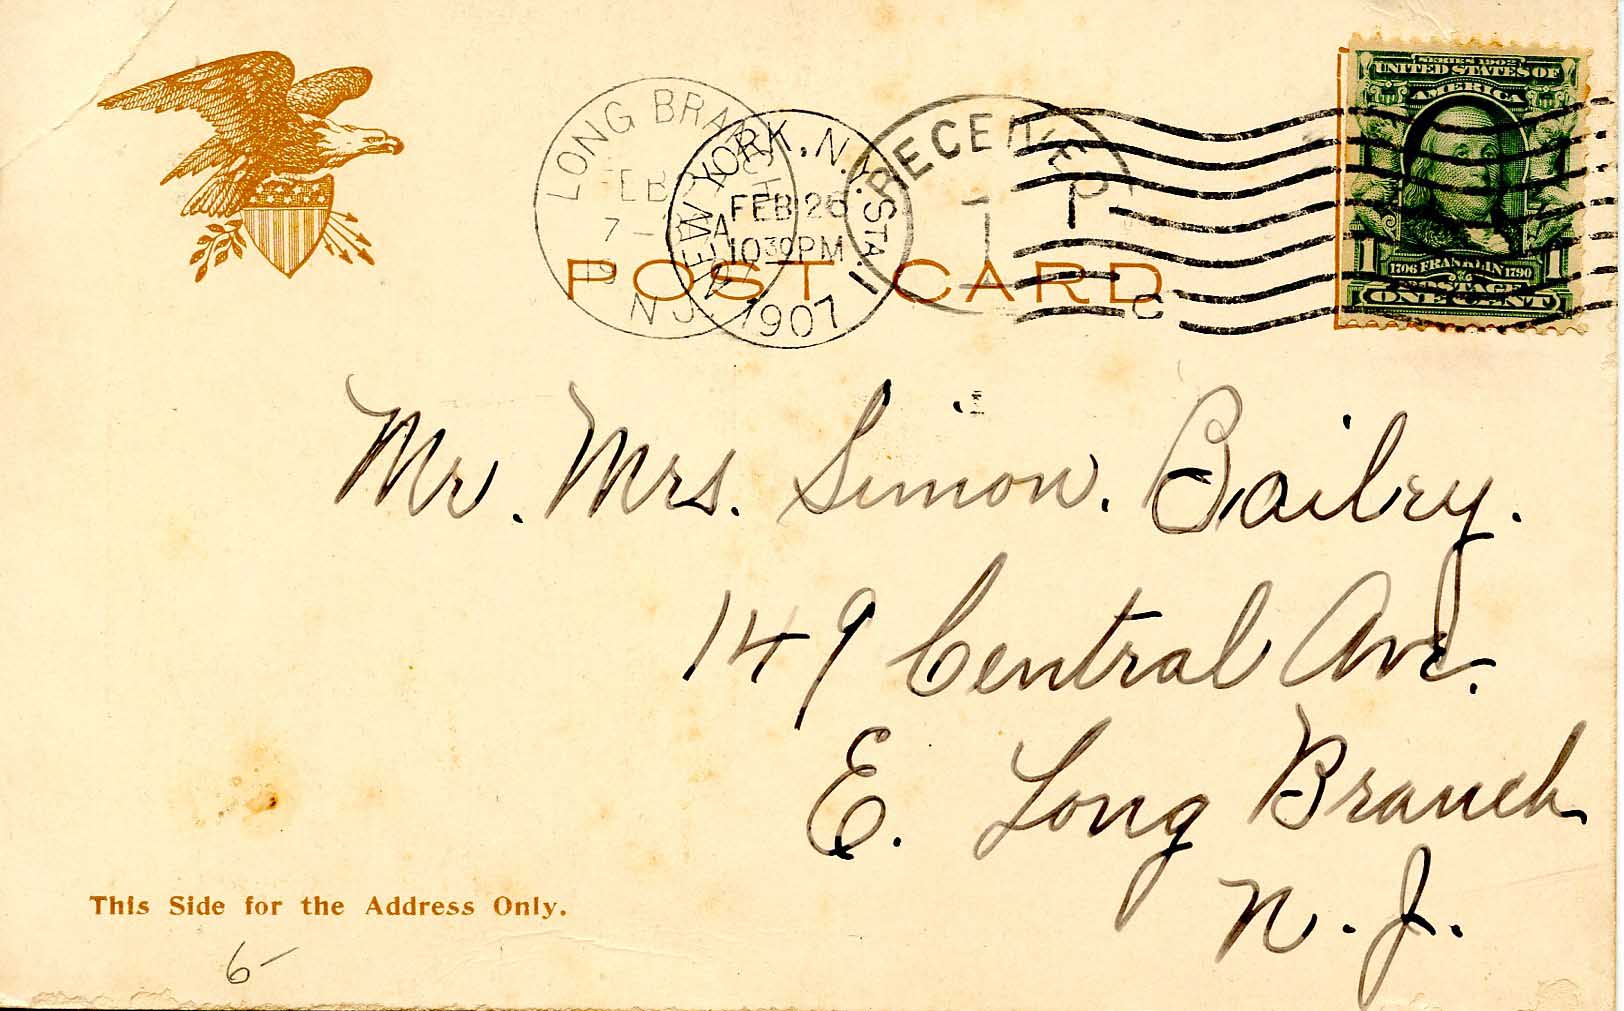 SERIES 1902
UNITED STATES OF
AMERICA
1706 FRANKLIN 1790
1 1
POSTAGE
ONE CENT
LONG BRANCH
FEB
7- A
19
N.J.
NEW YORK, N.Y. STA.
FEB 26
10 30 PM
1907
RECEIVED
1
C
POST CARD
Mr. Mrs. Simon. Bailey.
149 Central Ave.
E. Long Branch
N. J.
This Side for the Address Only.
6-